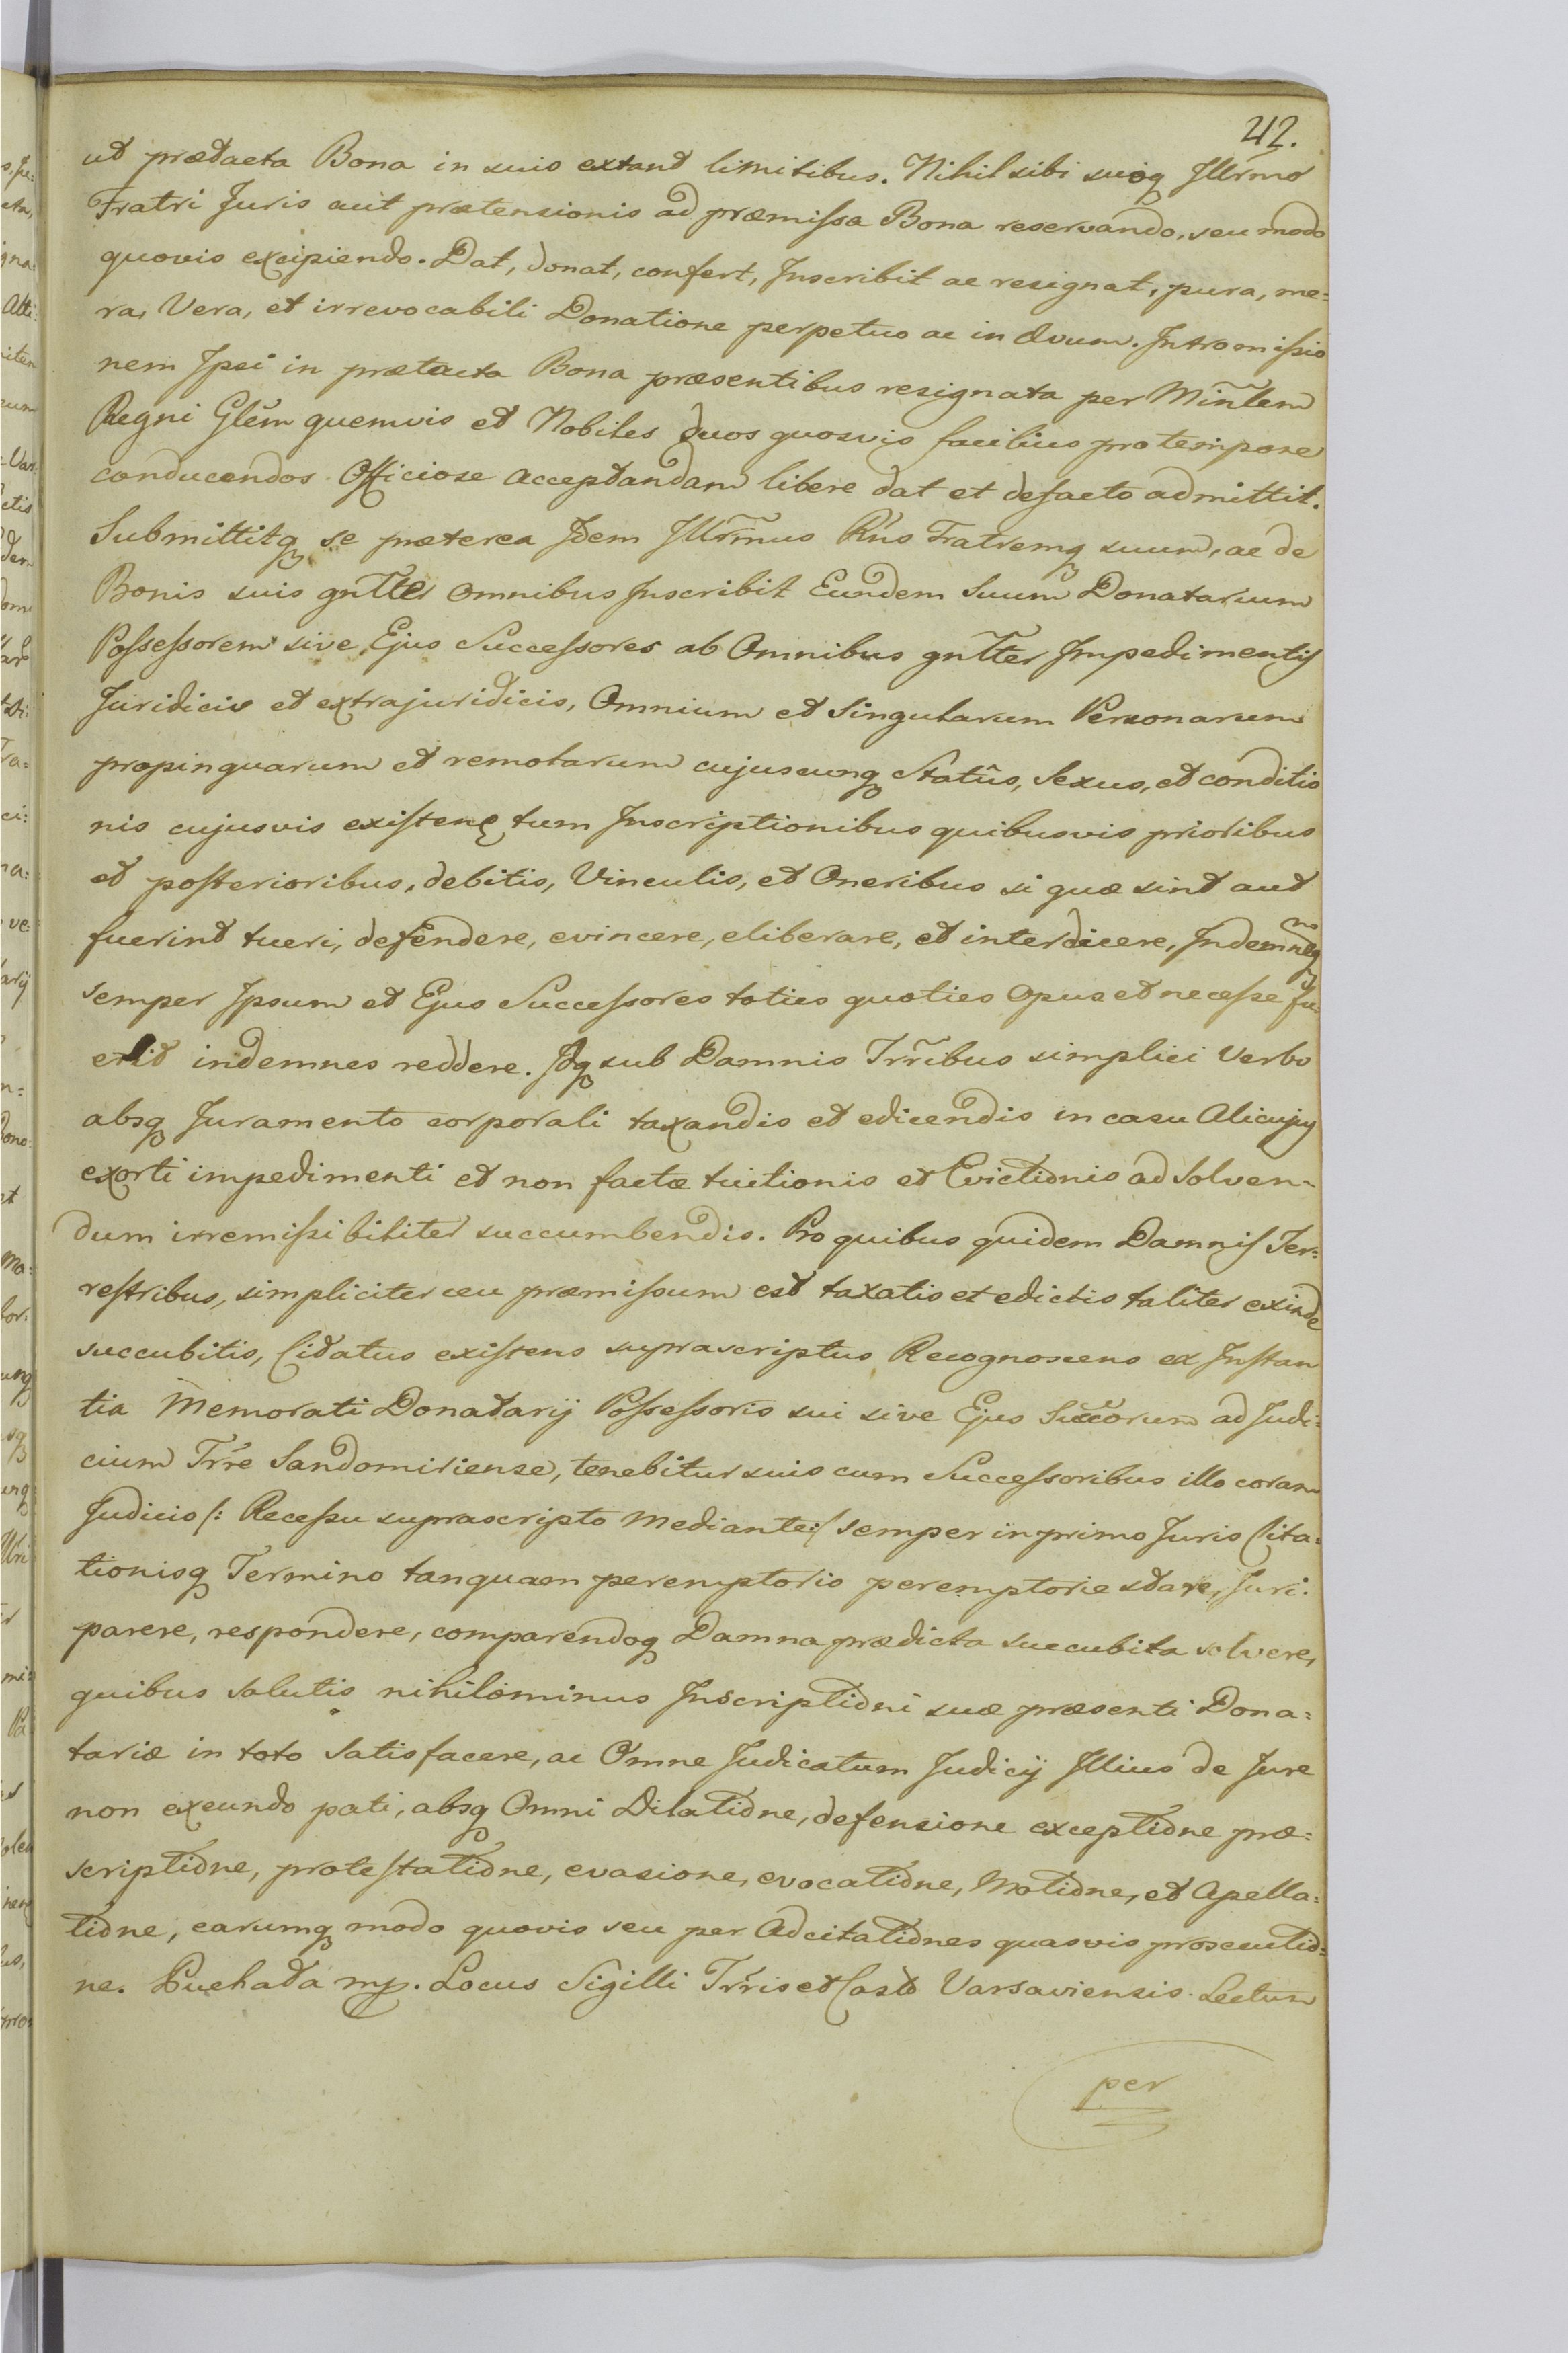 42.
ut prætacta Bona in suis extant limitibus. Nihil sibi suisq Illr̃mo
Fratri Juris aut prætensionis ad præmissa Bona reservando, seu modo
quovis excipiendo. Dat, donat, confert, Inscribit ac resignat, pura, me=
ra, Vera, et irrevocabili Donatione perpetuo ac in Ævum. Intromissio
nem Ipsi in prætacta Bona præsentibus resignata per Min̄lem
Regni Glem̃ quemvis et Nobiles duos quosvis facilius pro tempore
conducendos Officiose acceptandam libere dat et defacto admittit.
Submittitq se præterea Idem Illr̃mus Rñs Fratremq suum, ac de
Bonis suis gnlter omnibus Inscribit Eundem Suum Donatarium
Possessorem sive Ejus Successores ab Omnibus gnlter Impedimentis
Juridicis et extrajuridicis, Omnium et Singularum Personarum
propinquarum et remotarum cujuscunq Statûs, Sexus, et conditio
nis cujusvis existen tum Inscriptionibus quibusvis prioribus
et posterioribus, debitis, Vinculis, et Oneribus si quæ sint aut
fuerint tueri, defendere, evincere, eliberare, et intercdicere, Indemnesq
semper Ipsum et Ejus Successores toties quoties opus et necesse fu
erit indemnes reddere. Idq sub Damnis Trr̃ibus simplici Verbo
absq Juramento corporali taxandis et edicendis in casu Alicujus
exorti impedimenti et non factæ tuitionis et Evictionis ad Solven=
dum irremissibiliter succumbendis. Pro quibus quidem Damnis Ter=
restribus, simpliciter ceu præmissum est taxatis et edictis taliter exinde
succubitis, Citatus existens suprascriptus Recognoscens ex Instan
tia Memorati Donatarij Possessoris sui sive Ejus Succorum ad Judi=
cium Trr̃e Sandomiriense, tenebitur suis cum Successoribus illo coram
Judicio /: Recessu suprascripto Mediante :/ semper in primo Juris Cita=
tionisq Termino tanquam peremptorio peremptorie stare, Juri
parere, respondere, comparendoq Damna prædicta succubita solvere,
quibus solutis nihilominus Inscriptioni suæ præsenti Dona=
tariæ in toto Satisfacere, ac Omne Judicatum Judicij Illius de Jure
non exeundo pati, absq Omni Dilatione, defensione exceptione præ=
scriptione, protestatione, evasione, evocatione, Motione, et Apella=
tione, earumq modo quovis seu per Adcitationes quasvis prosecutio=
ne. Puchała mp. Locus Sigilli Trr̃is et Cast Varsaviensis. Lectum
per